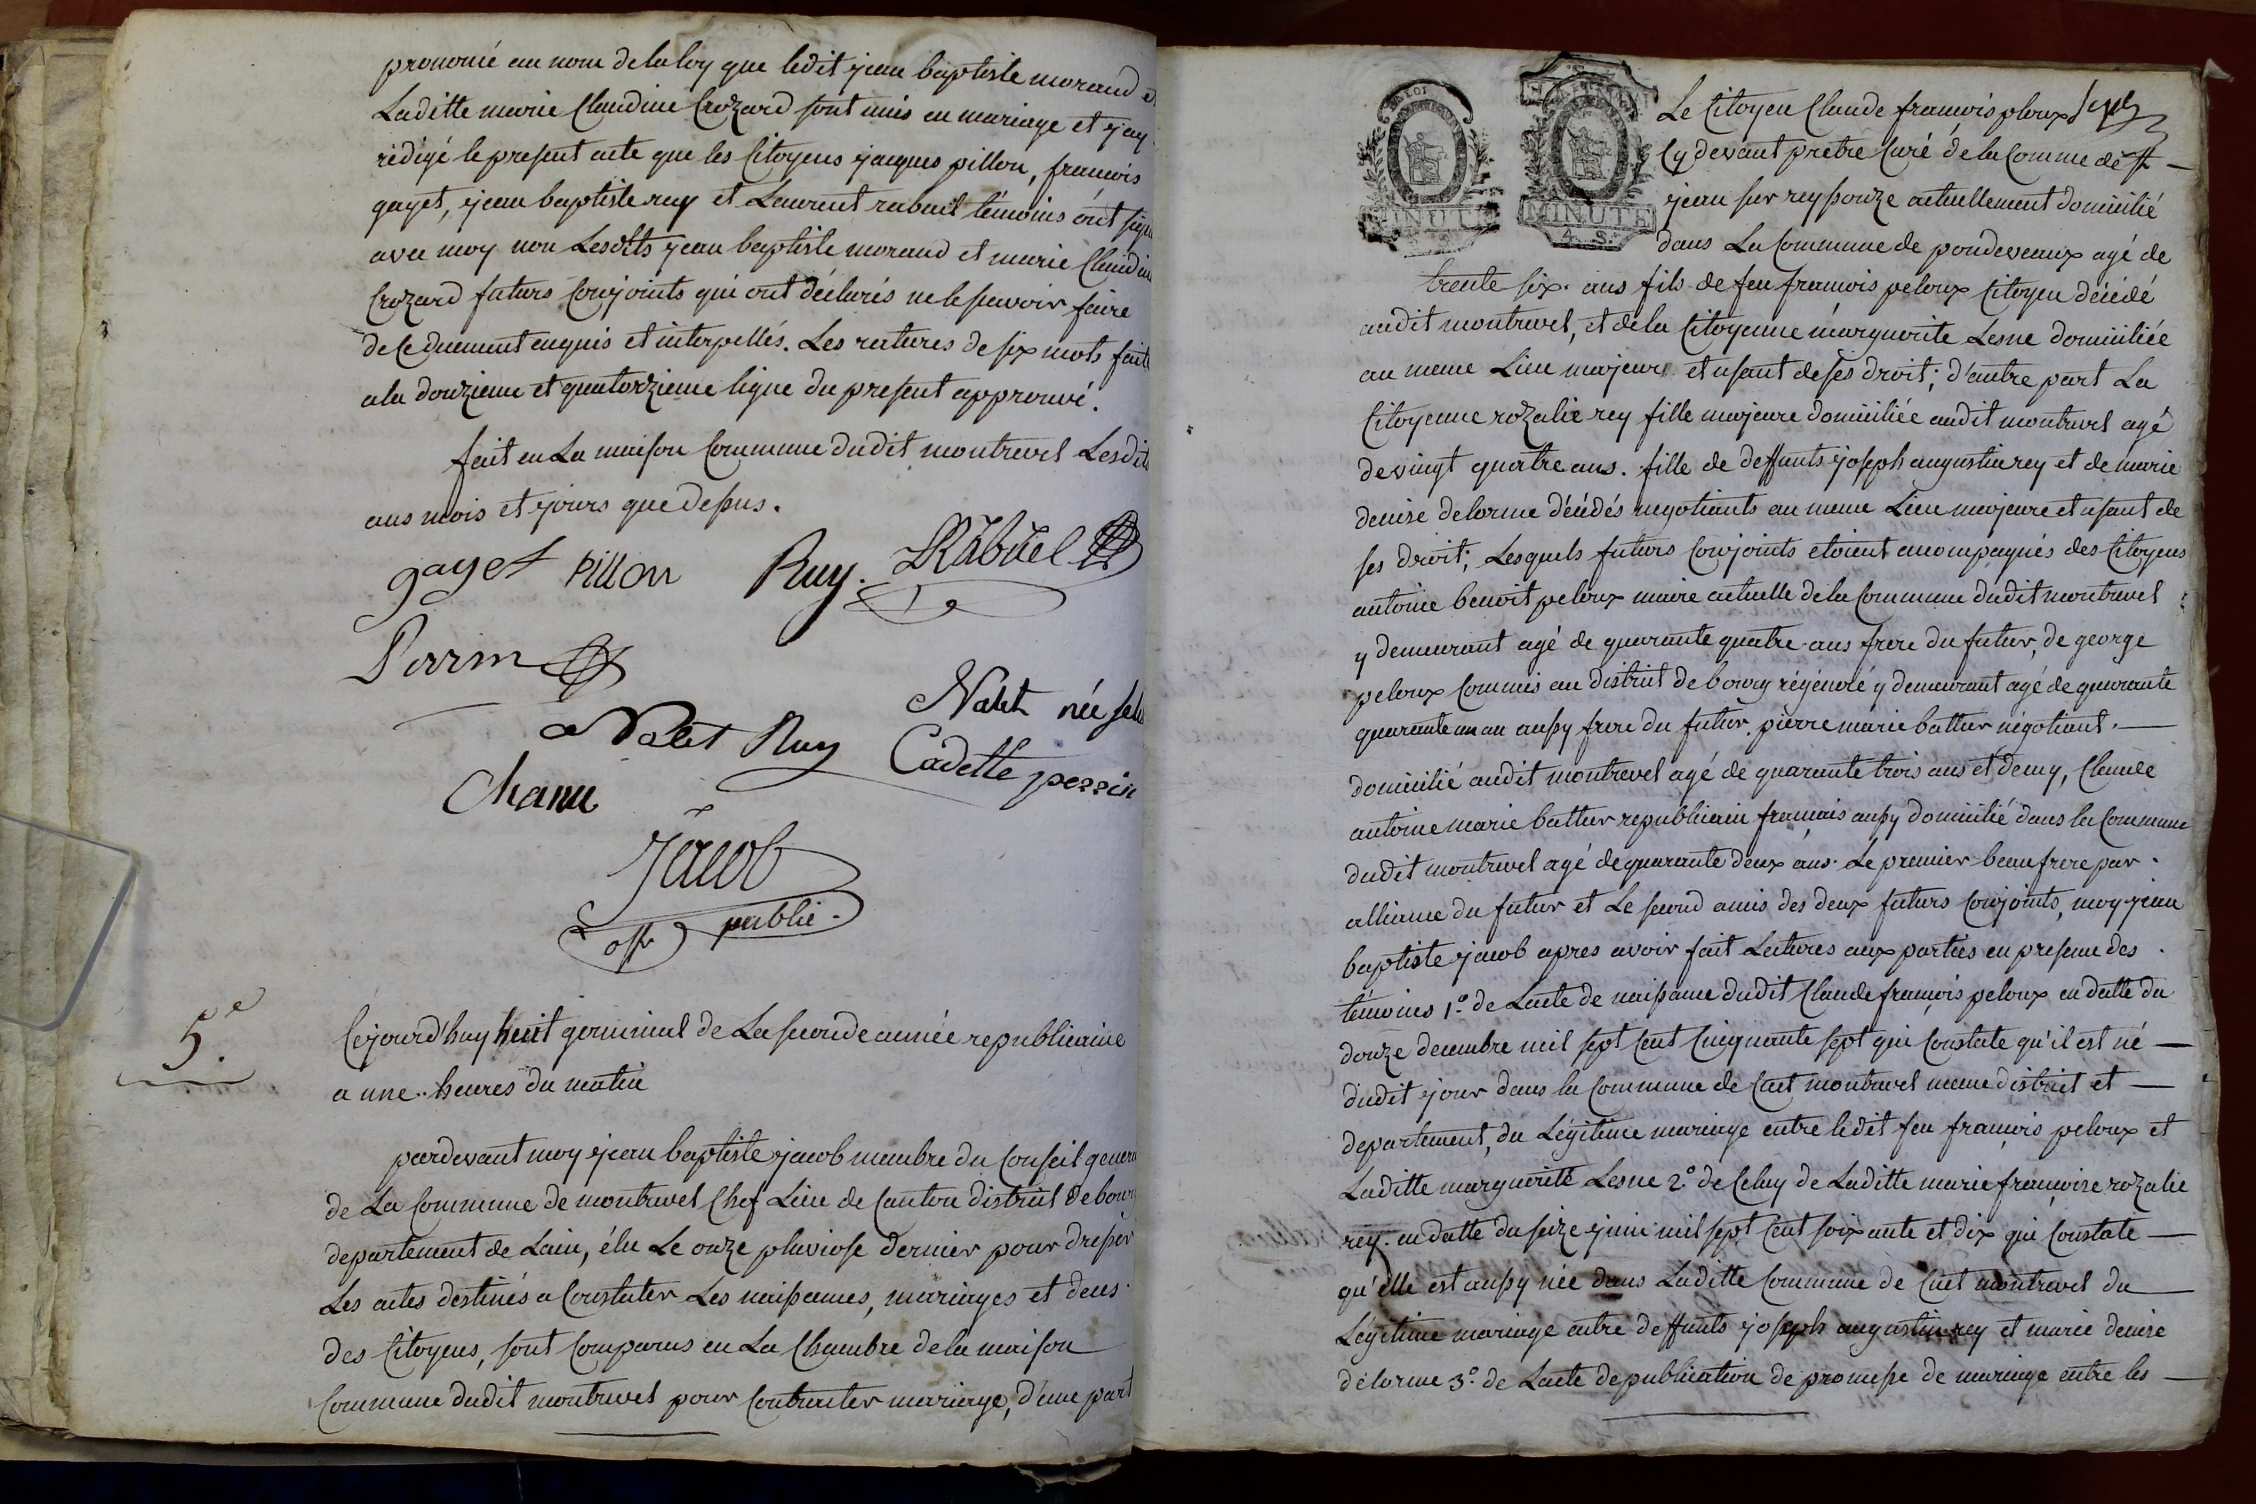 prononcé au nom de la loy que ledit jean baptiste morand et
Laditte marie Claudine Crozard sont unis en mariage et j'ay
rédigé le present acte que les Citoyens jacques pillon, francois
gayet, jean baptiste ruy et Laurent rabuel témoins ont signé
avec moy non Lesdits jean baptiste morand et marie Claudine
Crozard futurs Conjoints qui ont déclarés ne le sçavoir faire
de ce duement enquis et interpellés. Les ratures de six mots faite
a la douzieme et quatorzieme ligne du present approuvé.
fait en La maison Commune dudit montrevel Lesdits
ans mois et jours que dessus.
gayet pillon Ruy. LRabuel
Perrin
Nalet née
Nalet Ruy
Cadette perrin
Chanu
Jacob
offr public.
5e.
Cejourd'huy huit germinal de La seconde année republicaine
a une heures du matin
pardevant moy jean baptiste jacob membre du Conseil general
de La Commune de montrevel Chef Lieu de Canton district de bourg
departement de Lain, élu Le onze pluviose dernier pour dresser
Les actes destinés a Constater Les naissances, mariages et deces
des Citoyens, sont Comparus en La Chambre de la maison
Commune dudit montrevel pour Contracter mariage, d'une part
LOI
MINUTE
MINUTE
4. S.
Le Citoyen Claude francois peloux
Cy devant prêtre Curé de la Comme de st
jean sur reyssouze actuellement domicilié
dans La Commune de pondevaux agé de
trente six ans fils de feu francois peloux Citoyen décédé
audit montrevel, et de la Citoyenne marguerite Lesne domiciliée
au meme Lieu majeur et usant de ses droit; d'autre part La
Citoyenne rozalie rey fille majeure domiciliée audit montrevel agé
de vingt quatre ans. fille de deffunts joseph augustin rey et de marie
denise delorme décédés negotiants au meme Lieu majeure et usant de
ses droit; Lesquels futurs Conjoints etoient accompagnés des Citoyens
antoine benoit peloux maire actuelle de la Commune dudit montrevel
y demeurant agé de quarante quatre ans frere du futur, de george
peloux Commis au district de bourg régénéré y demeurant agé de quarante
quarante un an aussy frere du futur. pierre marie battur négotiant.
domicilié audit montrevel agé de quarante trois ans et demy, Claude
antoine marie battur republicain français aussy domicilié dans la Commune
dudit montrevel agé de quarante deux ans. Le premier beaufrere par
alliance du futur et Le second amis des deux futurs Conjoints, moy jean
baptiste jacob apres avoir fait Lectures aux parties en presence des
témoins 1.º de Lacte de naissance dudit Claude françois peloux en datte du
douze decembre mil sept Cent Cinquante sept qui Constate qu'il est né
dudit jour dans la Commune de Cuet montrevel meme district et
departement, du Légitime mariage entre ledit feu françois peloux et
Laditte marguerite Lesne 2.º de Celuy de Laditte marie françoise rozalie
rey. en datte du seize juin mil sept Cent soixante et dix qui Constate
qu'elle est aussy née dans Laditte Commune de Cuet montrevel du
Légitime mariage entre deffunts joseph augustin rey et marie denise
delorme 3.º de Lacte de publication de promesse de mariage entre les